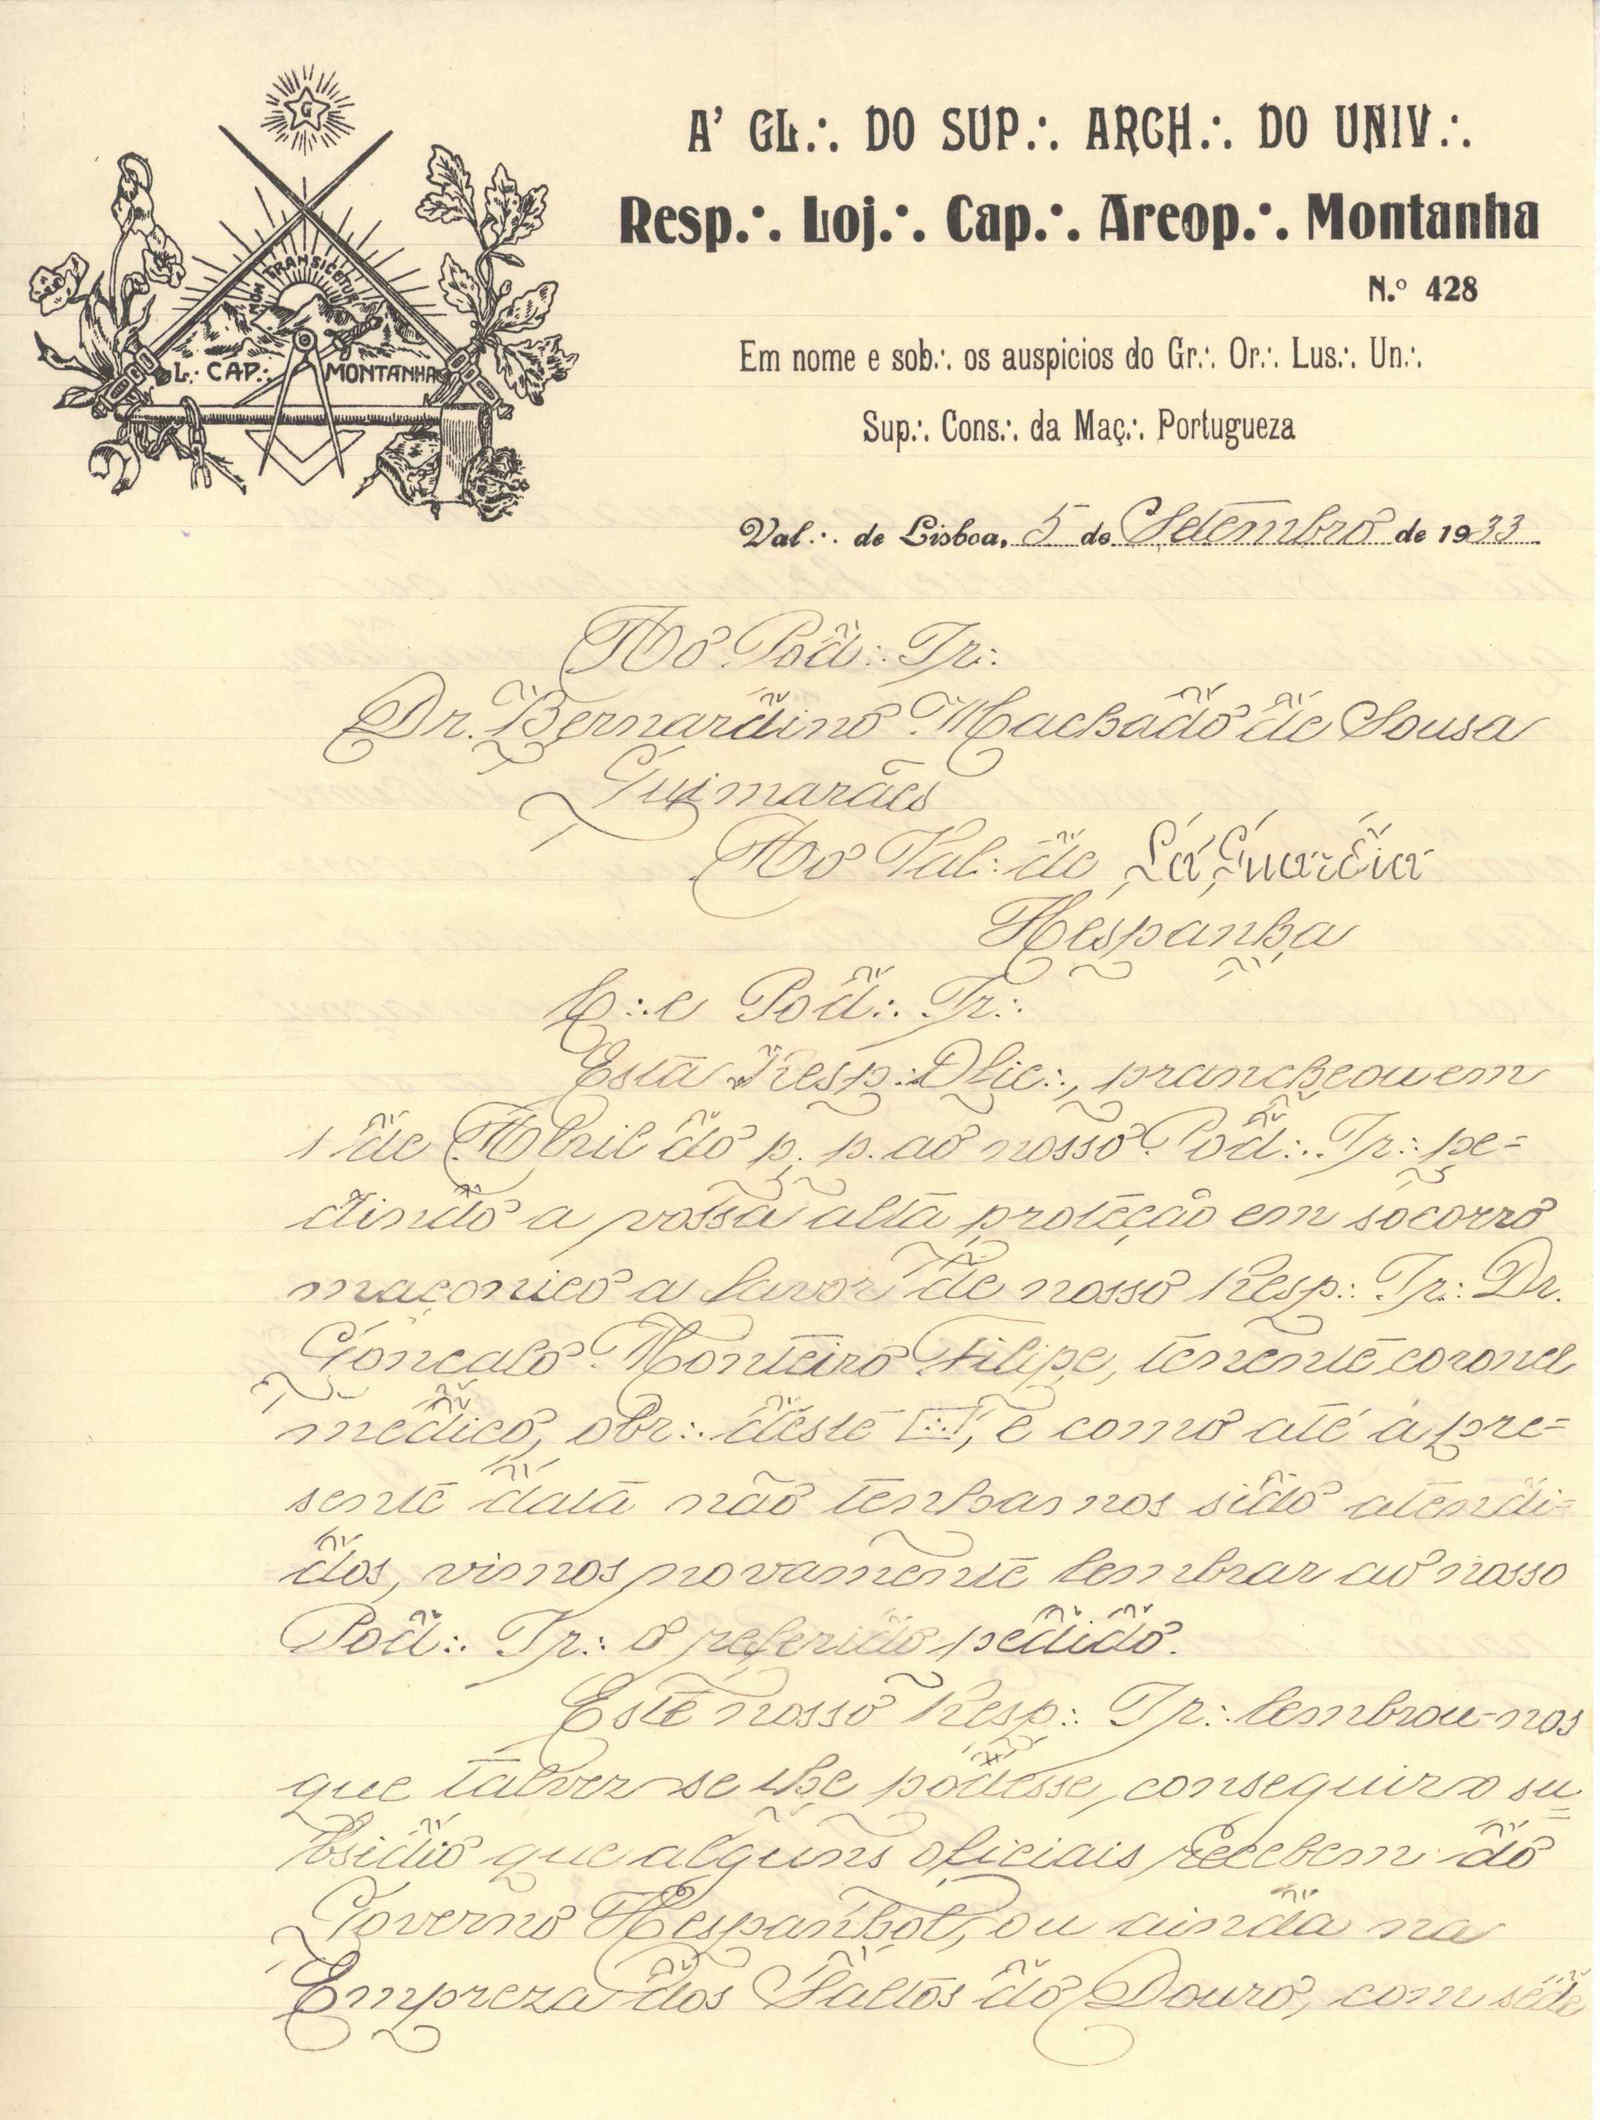 G
NON TRANSIGETUR
L.·. CAP.·. MONTANHA
A' GL.·. DO SUP.·. ARCH.·. DO UNIV.·.
Resp.·. Loj.·. Cap.·. Areop.·. Montanha
N.º 428
Em nome e sob.·. os auspicios do Gr.·. Or.·. Lus.·. Un.·.
Sup.·. Cons.·. da Maç.·. Portugueza
Val.·. de Lisboa, 5 de Setembro de 1933
Ao Pod.·. Ir.·.
Dr. Bernardino Machado de Sousa
Guimarães
Ao Val.·. de La Guardia
Hespanha
C.·. e Pod.·. Ir.·.
Esta Resp.·. Ofic.·., prancheou em
1 de Abril do p. p. ao nosso Pod.·. Ir.·. pe=
dindo a vossa alta proteção em socorro
maçonico a favor de nosso Resp.·. Ir.·. Dr.
Gonçalo Monteiro Filipe, tenente coronel
medico, obr.·. deste, e como até á pre=
sente data não tenhamos sido atendi=
dos, vimos novamente lembrar ao nosso
Pod.·. Ir.·. o referido pedido.
Este nosso Resp.·. Ir.·. lembrou-nos
que talvez se lhe podesse, conseguir o su=
bsidio que alguns oficiais recebem do
Governo Hespanhol, ou ainda na
Empreza dos Saltos do Douro, com séde